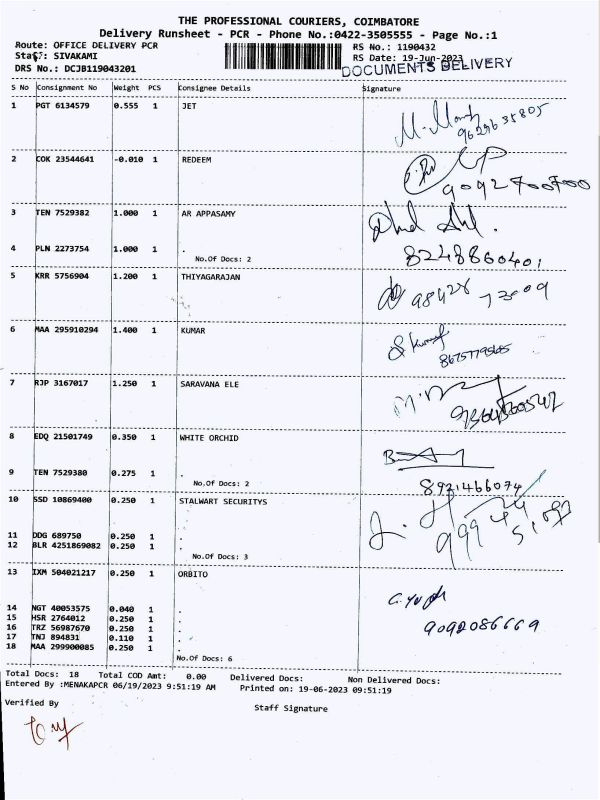 THE PROFESSIONAL COURIERS, COIMBATORE
Delivery Runsheet - PCR - Phone No.:0422-3505555 - Page No.:1
Route: OFFICE DELIVERY PCR
RS No.: 1190432
Staff: SIVAKAMI
RS Date: 19-Jun-2023
DRS No.: DCJB119043201
DOCUMENTS DELIVERY
S No Consignment No Weight PCS Consignee Details Signature
1 PGT 6134579 0.555 1 JET
9629635805
2 COK 23544641 -0.010 1 REDEEM
9092700700
3 TEN 7529382 1.000 1 AR APPASAMY
4 PLN 2273754 1.000 1 .
No.Of Docs: 2
8248860401
5 KRR 5756904 1.200 1 THIYAGARAJAN
98428 73009
6 MAA 295910294 1.400 1 KUMAR
7 RJP 3167017 1.250 1 SARAVANA ELE
8 EDQ 21501749 0.350 1 WHITE ORCHID
9 TEN 7529380 0.275 1 .
No.Of Docs: 2
8921466074
10 SSD 10869400 0.250 1 STALWART SECURITYS
11 DDG 689750 0.250 1 .
12 BLR 4251869082 0.250 1 .
No.Of Docs: 3
13 IXM 504021217 0.250 1 ORBITO
14 NGT 40053575 0.040 1 .
15 HSR 2764012 0.250 1 .
16 TRZ 56987670 0.250 1 .
17 TNJ 894831 0.110 1 .
18 MAA 299900085 0.250 1 .
9092086669
No.Of Docs: 6
Total Docs: 18 Total COD Amt: 0.00 Delivered Docs: Non Delivered Docs:
Entered By :MENAKAPCR 06/19/2023 9:51:19 AM Printed on: 19-06-2023 09:51:19
Verified By
Staff Signature